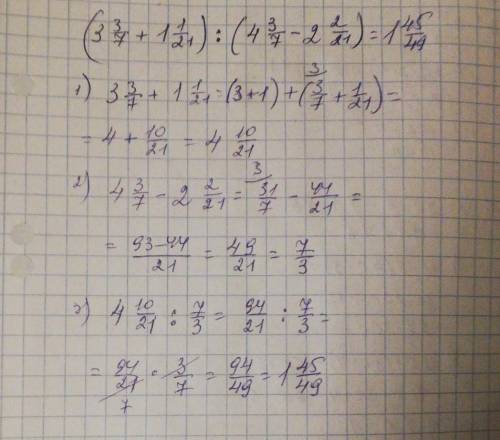 (3 3/7 + 1 1/21) : (4 3/7 - 2 2/21) = 1 45/49
1) 3 3/7 + 1 1/21 = (3+1) + (3/7 + 1/21) =
= 4 + 10/21 = 4 10/21
2) 4 3/7 - 2 2/21 = 31/7 - 44/21 =
= 93-44/21 = 49/21 = 7/3
3) 4 10/21 : 7/3 = 94/21 : 7/3 =
= 94/21 · 3/7 = 94/49 = 1 45/49
7